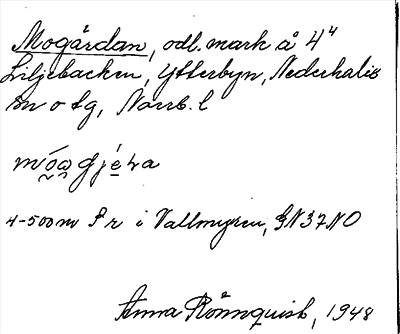 Mogårdan, odl. mark å 4⁴
Liljebacken, Ytterbyn, Nederkalix
sn o tg, Norrb. l
4-500 m S r i Vallmyren, GN37NO
Anna Rönnquist, 1948